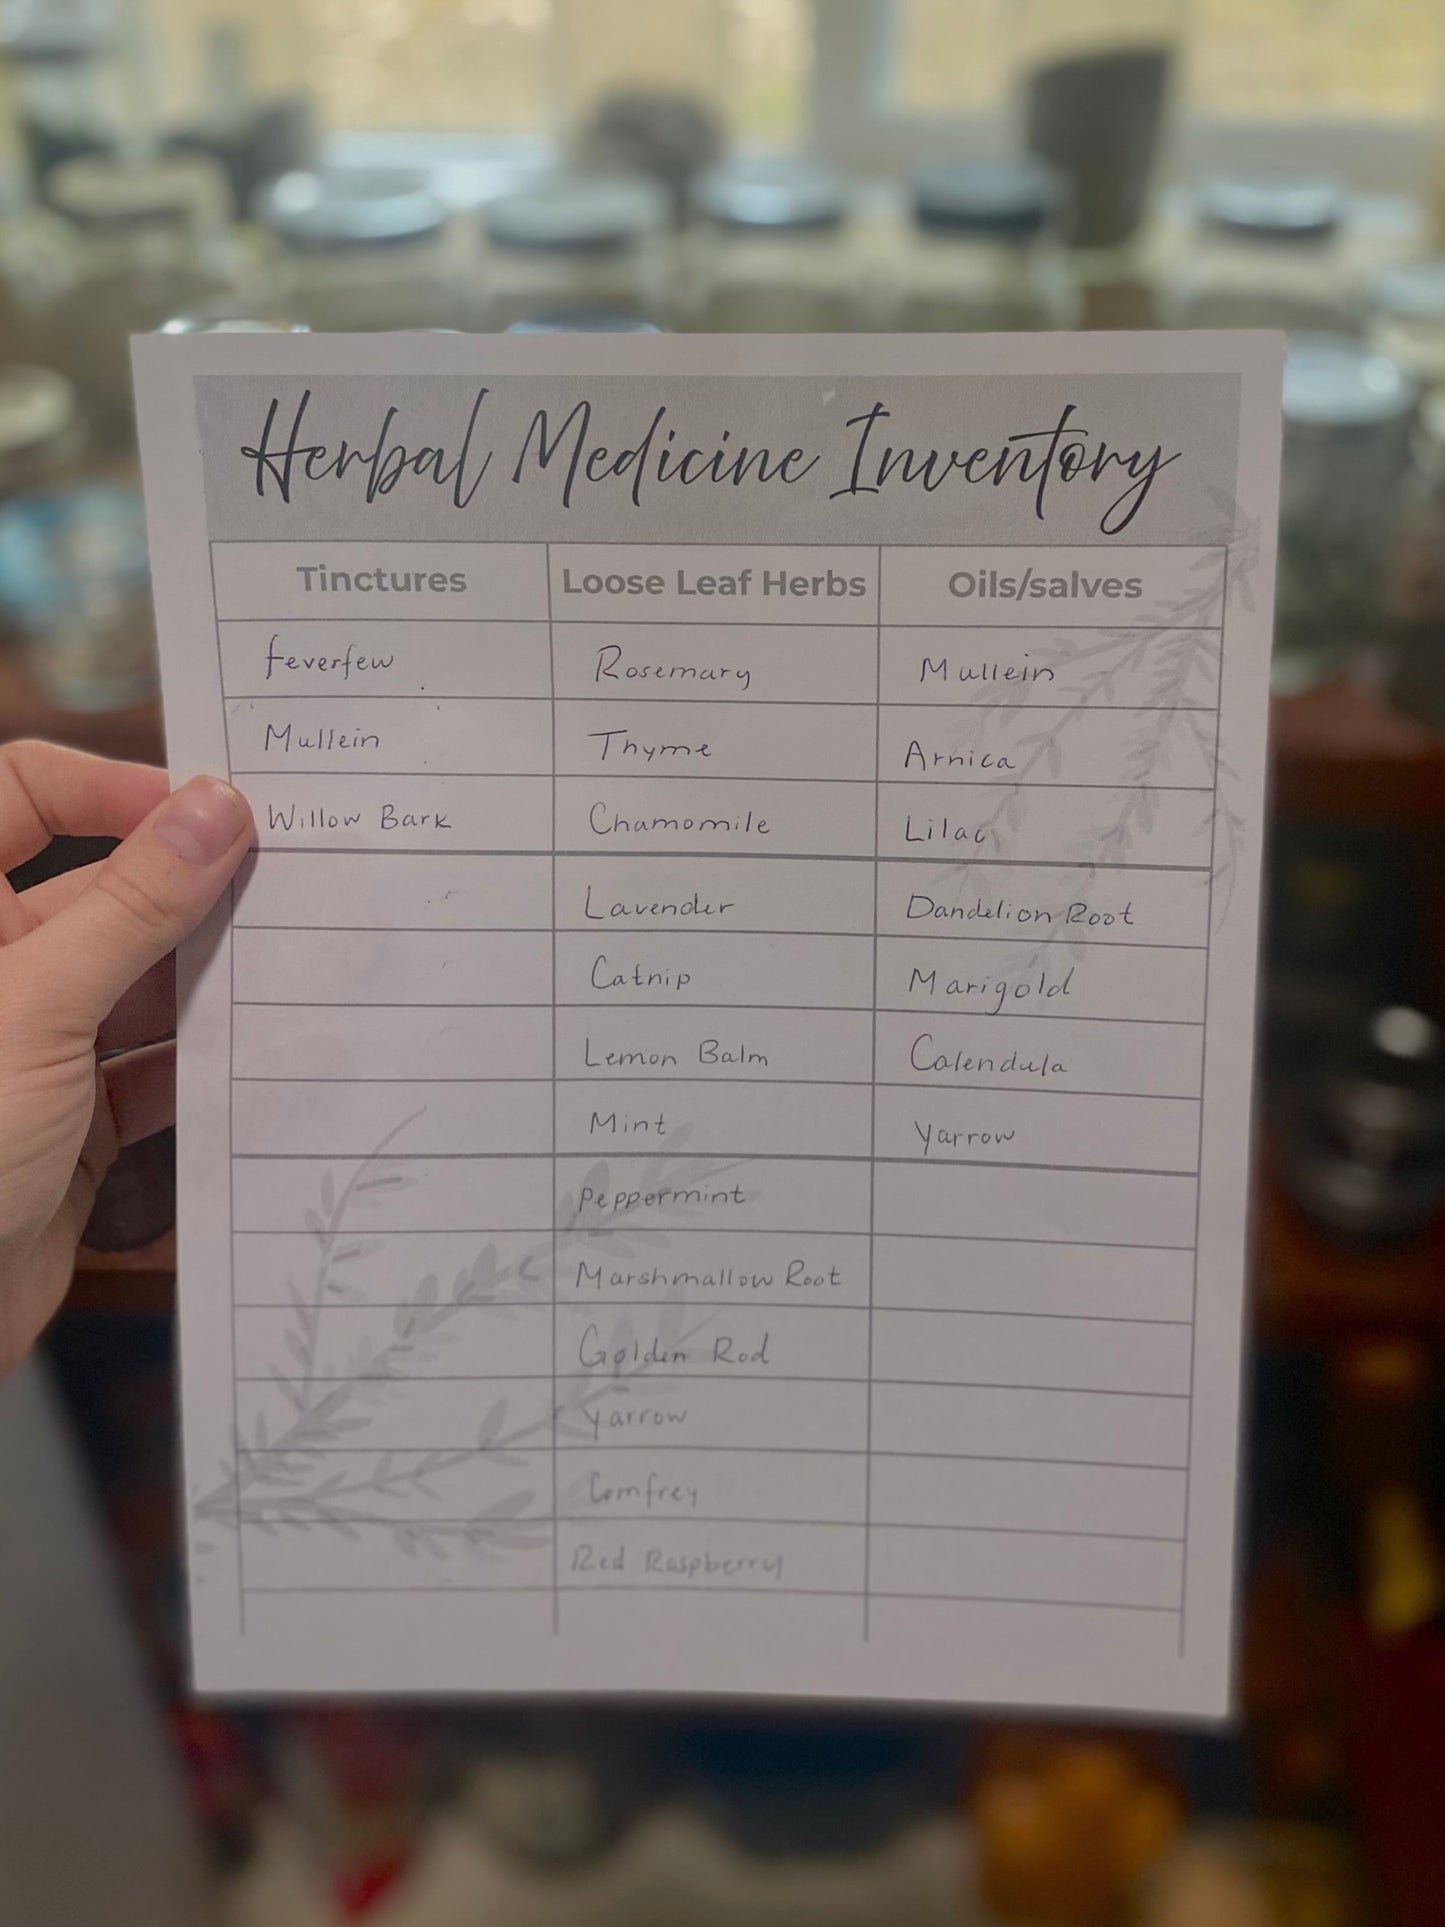 Herbal Medicine Inventory
Tinctures Loose Leaf Herbs Oils/salves
feverfew Rosemary Mullein
Mullein Thyme Arnica
Willow Bark Chamomile Lilac
Lavender Dandelion Root
Catnip Marigold
Lemon Balm Calendula
Mint Yarrow
peppermint
Marshmallow Root
Golden Rod
Yarrow
Comfrey
Red Raspberry